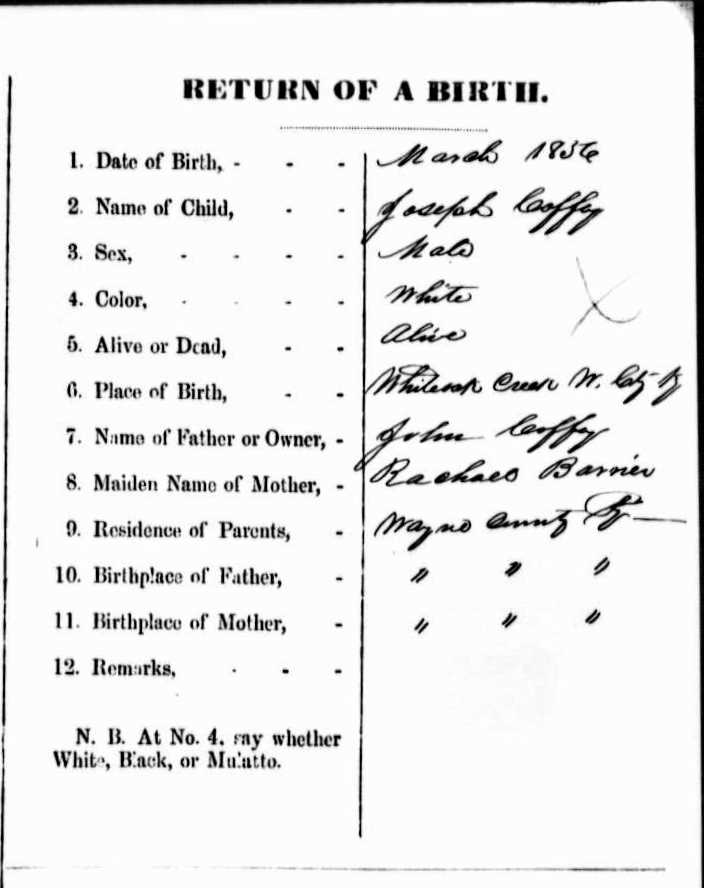 RETURN OF A BIRTH.
1. Date of Birth, - - - March 1856
2. Name of Child, - - Joseph Coffey
3. Sex, - - - - Male
4. Color, - - - - White
5. Alive or Dead, - - Alive
6. Place of Birth, - - Whiteoak Creek W. Cty Ky
7. Name of Father or Owner, - John Coffey
8. Maiden Name of Mother, - Rachael Barrier
9. Residence of Parents, - Wayne County Ky
10. Birthplace of Father, - " " "
11. Birthplace of Mother, - " " "
12. Remarks, - - -
N. B. At No. 4, say whether
White, Black, or Mulatto.